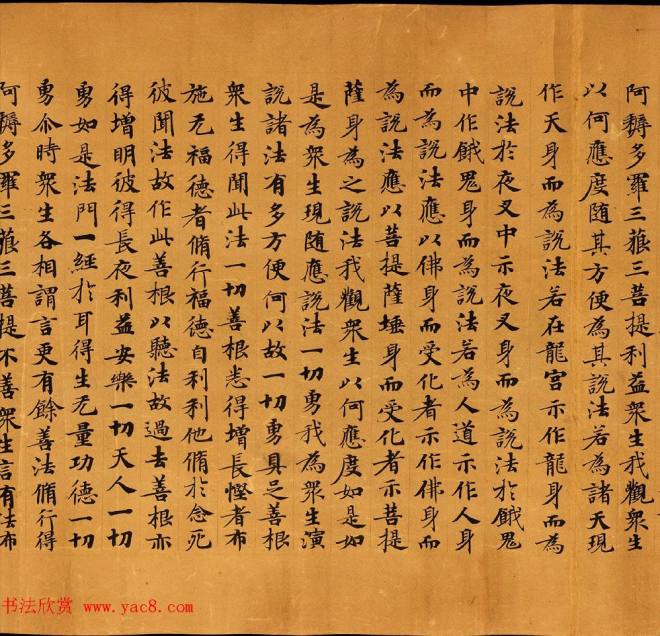 阿耨多羅三藐三菩提利益衆生我觀衆生
以何應度随其方便為其說法若為諸天現
作天身而為說法若在龍宮示作龍身而為
說法於夜叉中示夜叉身而為說法於餓鬼
中作餓鬼身而為說法若為人道示作人身
而為說法應以佛身而受化者示作佛身而
為說法應以菩提薩埵身而受化者示菩提
薩身為之說法我觀衆生以何應度如是如
是為衆生現随應說法一切勇我為衆生演
說諸法有多方便何以故一切勇具足善根
衆生得聞此法一切善根悉得增長慳者布
施无福德者脩行福德自利利他脩於念死
彼聞法故作此善根以聽法故過去善根亦
得增明彼得長夜利益安樂一切天人一切
勇如是法門一經於耳得生无量功德一切
勇尒時衆生各相謂言更有餘善法脩行得
阿耨多羅三藐三菩提不善衆生言有法布
书法欣赏 www.yac8.com